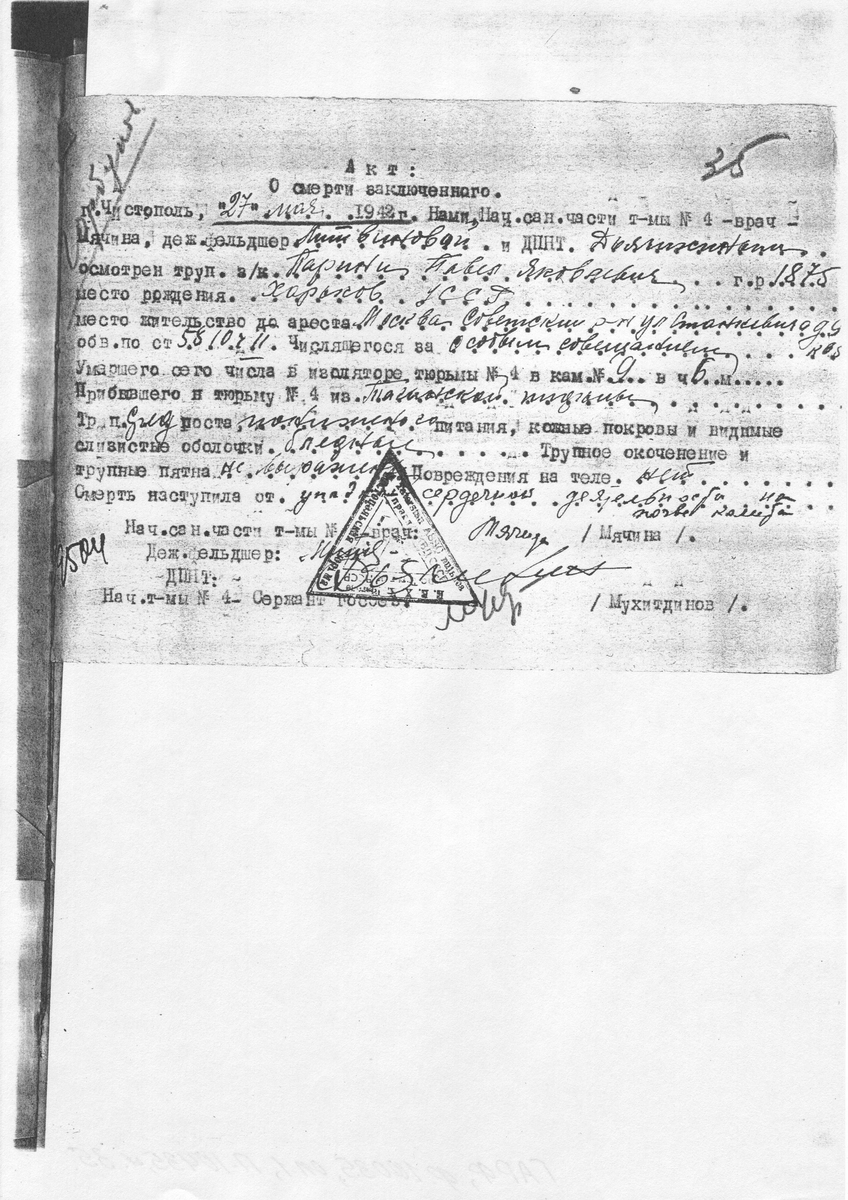 35
Акт:
О смерти заключенного.
г.Чистополь, "27" мая. . 1942г. Нами, Нач.сан.части т-мы № 4 -врач -
Мячина, деж.фельдшер . и ДПНТ.
осмотрен труп. з/к. Павел Яковлевич . . г.р. 1875
место рождения. Харьков УССР
место жительство до ареста Москва Советский р-н ул Станкевича д 9
обв.по ст 58.10.ч 11. Числящегося за Особым совещанием кв 8
Умершего сего числа в изоляторе тюрьмы № 4 в кам.№ 9 . . в ч 6 м.....
Прибывшего и тюрьму № 4 из. Таганской тюрьмы
Тр.п. Сред роста пониженого питания, кожные покровы и видимые
слизистые оболочки. бледные . . . . . . Трупное окоченение и
трупные пятна не выражены Повреждения на теле. нет
Смерть наступила от. упадка сердечной деятельности на
почве
Нач.сан.части т-мы № -врач: Мячина / Мячина /.
Деж.фельдшер:
ДПНТ:
Нач.т-мы № 4- Сержант госбез. / Мухитдинов /.